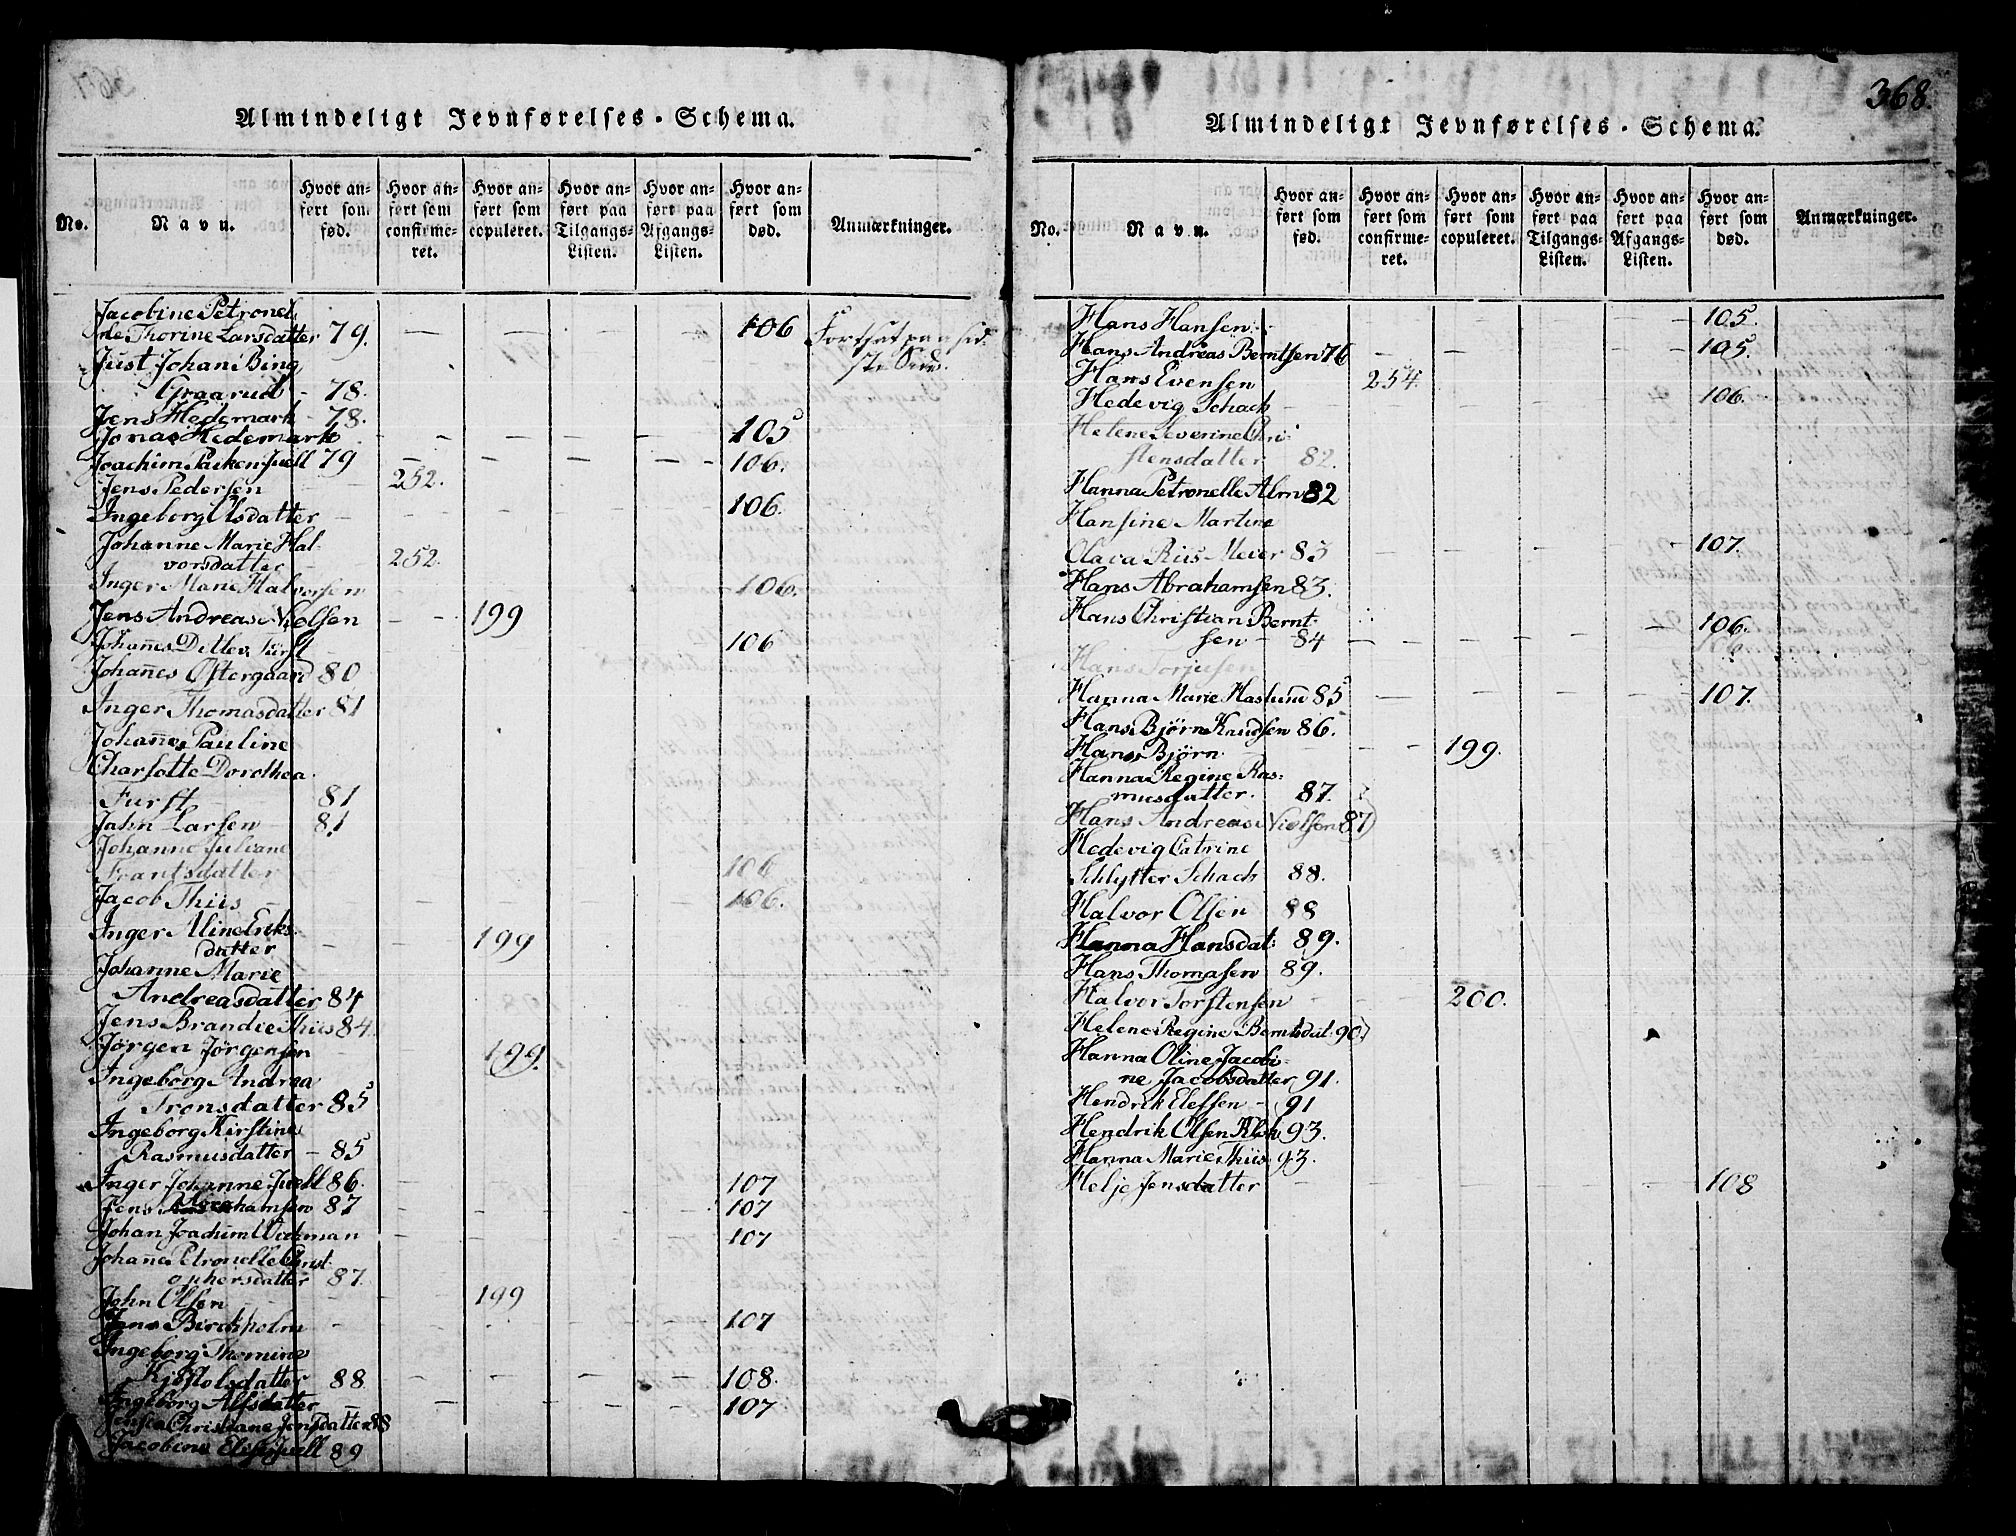 Almindeligt Jevnførelses-Schema.
No. Navn. Hvor anført som fød. Hvor anført som confirmeret. Hvor anført som copuleret. Hvor anført paa Tilgangs-Listen. Hvor anført paa Afgangs-Listen. Hvor anført som død. Anmærkninger.
Jacobine Petronel
Thorine Larsdatter 79. — — — 106 Fortsat paa
Just Johan Bing
Graarud - 78.
Jens Hedemark - 78.
Jonas Hedemark - - - - - 105
Joachim Juell 79 - - - - - 106.
Jens Pedersen 252.
Ingeborg Olsdatter - - - - - 106.
Johanne Marie Hal-
vorsdatter - 252.
Inger Marie Halvorsen - 106.
Jens Andreas Nielsen - - 199
Johañes Ditlev Fürst 106
Johañes Østergaard 80
Inger Thomasdatter 81
Johañe Pauline
Charlotte Dorothea
Furst 81
Jahn Larsen 81
Johanne Juliane
Frantsdatter 106
Jacob Thiis - 106.
Inger Aline Eriks
datter - - 199
Johanne Marie
Andreasdatter 84
Jens Brandie Thiis 84.
Jörgen Jörgensen 199.
Ingeborg Andrea
Tronsdatter 85
Ingeborg Kirstine
Rasmusdatter - 85
Inger Johanne Juell 86. 107
Jens Abrahamsen 87 107
Johan Joachim - - - 107
Johañe Petronelle Christ-
ophersdatter 87.
John Olsen 199
Jens Birchholm - - - 107
Ingeborg Thomine
Kjøstolsdatter 88 - - - - - 108.
Ingeborg Alfsdatter - - - 107
Christiane Jensdatter 88
Jacobine Juell 89
368.
Almindeligt Jevnførelses-Schema.
No. Navn. Hvor anført som fød. Hvor anført som confirmeret. Hvor anført som copuleret. Hvor anført paa Tilgangs-Listen. Hvor anført paa Afgangs-Listen. Hvor anført som død. Anmærkninger.
Hans Hansen 105.
Hans Andreas Berntsen 76 - - - - 105.
Hans Evensen 254.
Hedevig Schach - - - 106.
Helene Severine Chri-
stensdatter 82.
Hanna Petronelle Alm 82
Hansine Martine
Olava Riis Meier 83 - - - - - 107.
Hans Abrahamsen 83.
Hans Christian Bernt-
sen - 84 - 106.
Hans Torjusen - - - - - 106
Hanna Marie Haslund 85 - - - - 107.
Hans Bjørn Knudsen 86.
Hans Bjørn - - 199.
Hanna Regine Ras-
musdatter. 87.
Hans Andreas Nielsen 87
Hedevig Catrine
Schlytter Schach 88.
Halvor Olsen 88
Hanna Hansdat: 89.
Hans Thomasen 89.
Halvor Torstensen - - 200.
Helene Regine Berntsdat: 90
Hanna Oline Jacobi-
ne Jacobsdatter 91.
Hendrik Elefsen - 91
Hendrik Olsen 93.
Hanna Marie Thiis 93.
Helje Jensdatter - - - - - 108